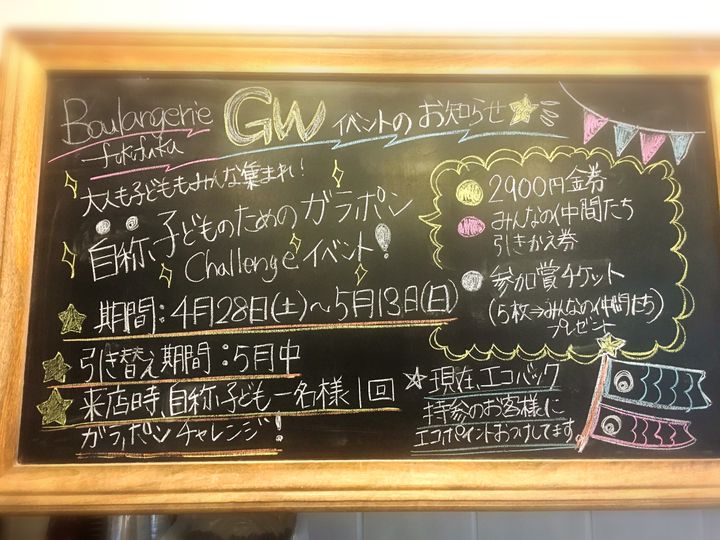 Boulangerie
fukufuku
GW イベントのお知らせ
大人も子どももみんな集まれ!
自称、子どものためのガラポン
Challengeイベント!
期間:4月28日(土)~5月13日(日)
引き替え期間:5月中
来店時、自称、子ども一名様1回
ガラポンチャレンジ!
2900円金券
みんなの仲間たち
引きかえ券
参加賞チケット
(5枚→みんなの仲間たち)
プレゼント
現在、エコバック
持参のお客様に
エコポイントおつけしてます。